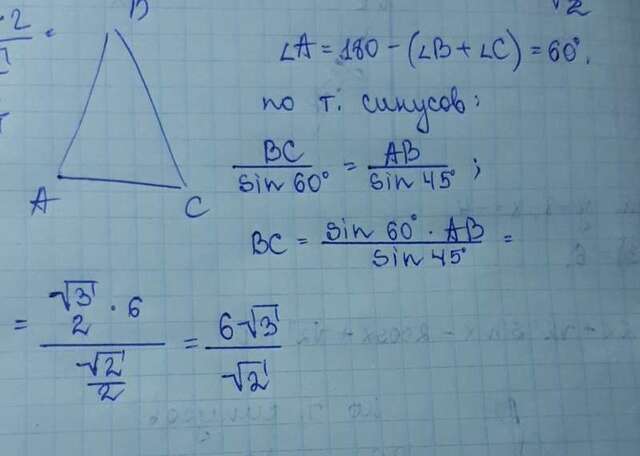 B
A
C
√2
∠A = 180 - (∠B + ∠C) = 60°.
по т. синусов:
BC / sin 60° = AB / sin 45° ;
BC = sin 60° · AB / sin 45° =
= √3/2 · 6 / √2/2 = 6√3 / √2